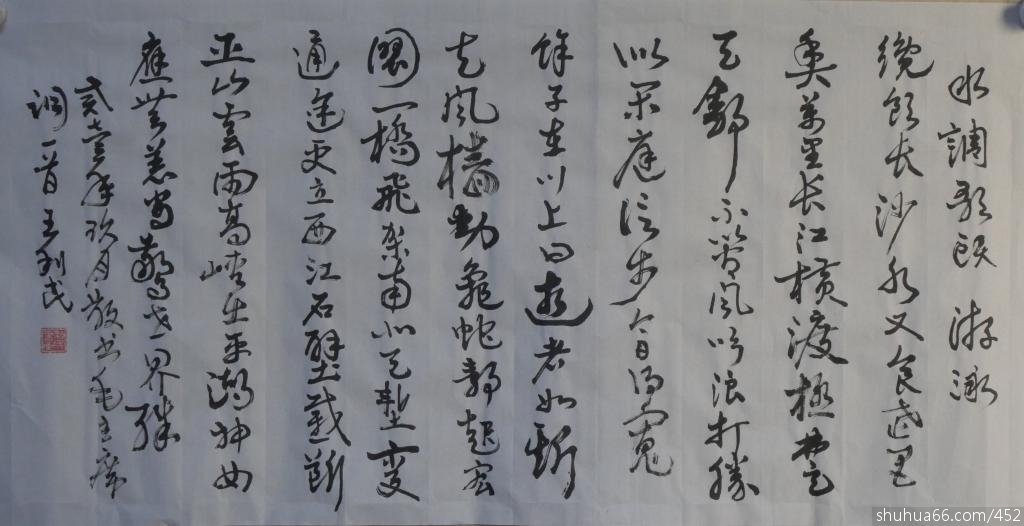 水調歌頭 游泳
纔飲长沙水又食武昌
魚萬里长江横渡極楚
天舒不管風吹浪打勝
似閑庭信步今日得寬
餘子在川上曰逝者如斯
夫風檣動龜蛇静起宏
圖一橋飛架南北天塹變
通途更立西江石壁截斷
巫山雲雨高峡出平湖神女
應無恙當驚世界殊
貳壹年玖月敬书毛主席
詞一首 王利民
shuhua66.com/452